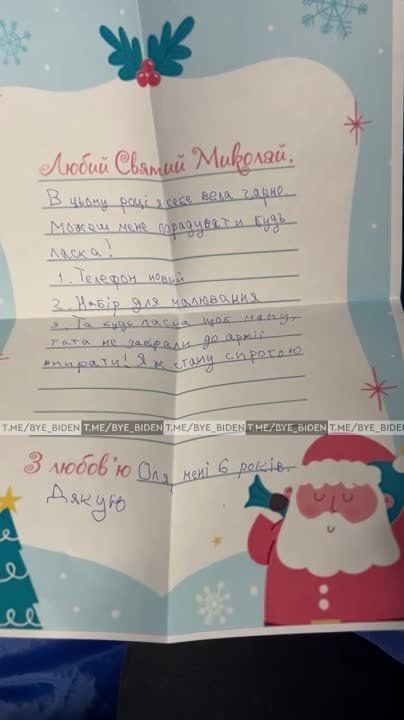 Любий Святий Миколай,
В цьому році я себе вела гарно
Можеш мене порадувати будь
ласка!
1. Телефон новий
2. Набір для малювання
3. Та будь ласка щоб маму,
тата не забрали до армії
вмирати! Я ж стану сиротою
T.ME/BYE_BIDEN T.ME/BYE_BIDEN T.ME/BYE_BIDEN T.ME/BYE_BIDEN T.ME/BYE_BIDEN
З любов'ю Оля, мені 6 років.
Дякую